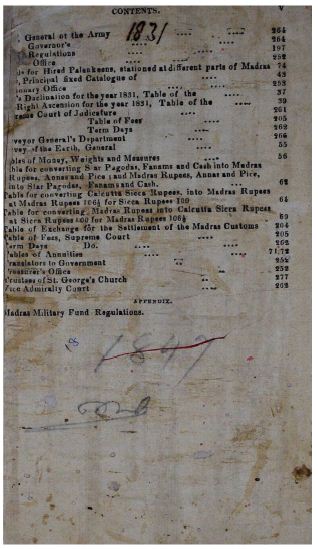 CONTENTS. v
General of the Army 1831 264
Governor's 264
Regulations 197
Office 252
for Hired Palenkeens, stationed at different parts of Madras 74
Principal fixed Catalogue of 43
Office 253
's Declination for the year 1831, Table of the 37
Right Ascension for the year 1831, Table of the 39
Court of Judicature 261
Table of Fees 205
Term Days 262
veyor General's Department 266
vey of the Earth, General 55
bles of Money, Weights and Measures 56
ble for converting Star Pagodas, Fanams and Cash into Madras
Rupees, Annas and Pice; and Madras Rupees, Annas and Pice,
into Star Pagodas, Fanams and Cash. 62
Table for converting Calcutta Sicca Rupees, into Madras Rupees
at Madras Rupees 106½ for Sicca Rupees 100 64
Table for converting, Madras Rupees into Calcutta Sicca Rupees
at Sicca Rupees 100 for Madras Rupees 106½ 69
Table of Exchange for the Settlement of the Madras Customs 204
Table of Fees, Supreme Court 205
Term Days Do. 262
Tables of Annuities 71,72
Translators to Government 252
Treasurer's Office 252
Trustees of St. George's Church 277
Vice Admiralty Court 262
APPENDIX.
Madras Military Fund Regulations.
18
1847